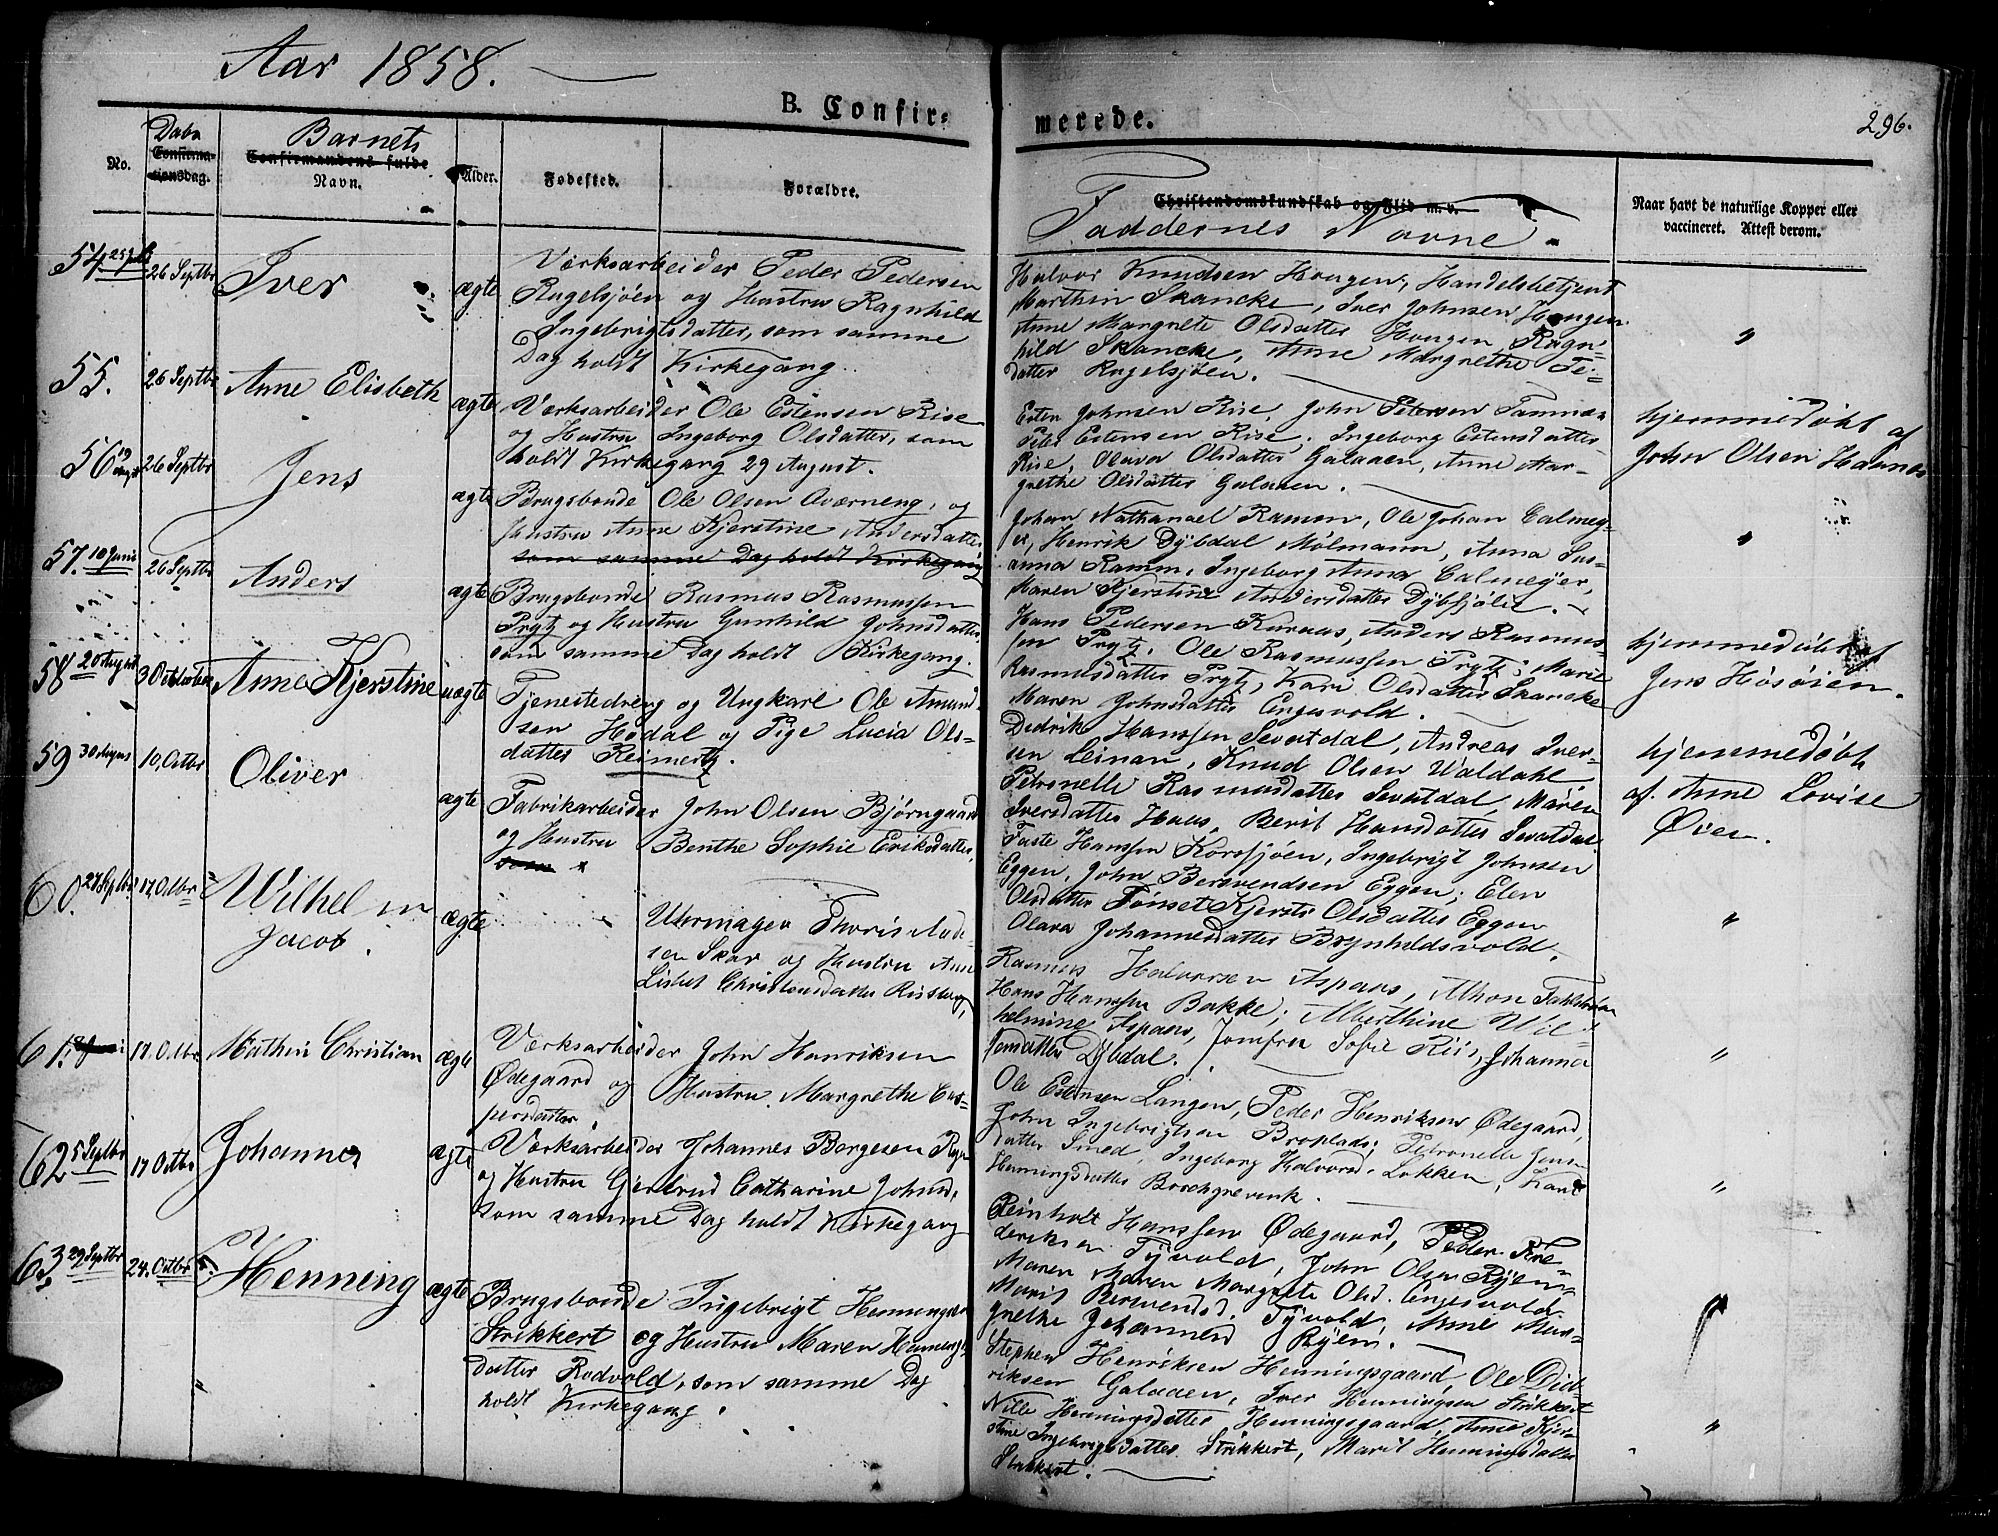 Aar 1858.
B. Confirmerede.
296.
No.
Daba
Confirmationsdag.
Barnets
Confirmandens fulde
Navn.
Alder.
Fødested.
Forældre.
Christendomskundskab og Flid m. v.
Faddernes Navne.
Naar havt de naturlige Kopper eller
vaccineret. Attest derom.
54 26 Septbr Iver ægte
Værksarbeider Peder Pedersen
Rugelsjøen og Hustru Ragnhild
Ingebrigtsdatter, som samme
Dag holdt Kirkegang.
Halvor Knudsen Hougen, Handelsbetjent
Marthin Skancke, Iver Johnsen Hougen
Anne Margrete Olsdatter Hougen, Ragn-
hild Skancke, Anne Margrethe Pe-
datter Rugelsjøen.
"
55. 26 Septbr Anne Elisbeth ægte
Værksarbeider Ole Estensen Rise
og Hustru Ingeborg Olsdatter, som
holdt Kirkegang 29 August.
Esten Johnsen Rise, John Petersen Tamnæs
Peter Estensen Rise. Ingeborg Estensdatter
Rise, Olava Olsdatter Galaaen, Anne Mar-
grethe Olsdatter Galaaen.
hjemmedøbt af
John Olsen Haanes
56 19 26 Septbr Jens ægte
Brugsbonde Ole Olsen Aværneng, og
Hustru Anne Kjerstine Andersdatter
som samme Dag holdt Kirkegang
Johan Nathanael Ramm, Ole Johan Calmey-
er, Henrik Dybdal Mølmann, Anna Sus-
anna Ramm, Ingeborg Anna Calmeyer,
Maren Kjerstine Andersdatter Dybfjøler.
"
57. 10 Juni 26 Septbr Anders ægte
Brugsbonde Rasmus Rasmussen
Prytz og Hustru Gunhild Johnsdatter
som samme Dag holdt Kirkegang.
Hans Pedersen Kuraas, Anders Rasmus-
sen Prytz, Ole Rasmussen Prytz, Marie
Rasmusdatter Prytz, Kari Olsdatter Skancke
Maren Johnsdatter Engesvold.
hjemmedøbt af
Jens Høsøien.
58 20 August 3 October Anne Kjerstine uægte
Tjenestedreng og Ungkarl Ole Amund-
sen Hodal og Pige Lucia Ols-
datter Reimertz.
Didrik Hanssen Sevatdal, Andreas Iver-
sen Leinan, Knud Olsen Waldahl
Petronelle Rasmusdatter Sevatdal, Maren
Iversdatter Haas, Berit Hansdatter Sevatdal
hjemmedøbt
af. Anne Lovise
Øien.
59 30 August 10. Octbr Oliver ægte
Fabrikarbeider John Olsen Bjørngaard
og Hustru Benthe Sophie Eriksdatter,
som
Faste Hanssen Korssjøen, Ingebrigt Johnsen
Eggen, John Bersvendsen Eggen; Elen
Olsdatter Tønset, Kjersti Olsdatter Eggen
Olava Johannesdatter Brynhildsvold.
"
60. 27 Septbr. 17. Octbr Wilhelm
Jacob. ægte
Uhrmager Thoris Ande-
sen Skar og Hustru Ane
Lisbet Christensdatter
Rasmus Halvorsen Aspaas,
Hans Hanssen Bakke; Alberthine Wil-
helmine Aspaas, Jomfru Sofie Riis, Johanna
Jensdatter Dybdal.
"
61. 17. Octbr Mathis Christian ægte
Værksarbeider John Henriksen
Ødegaard og Hustru Margrethe Cas-
persdatter
Ole Estensen Langen, Peder Henriksen Ødegaard,
John Ingebrigtsen Broplads; Petronelle Jens-
datter Smed, Ingeborg Halvorsd. Løkken,
Henningsdatter Borchgrevink.
"
62 5 Septbr 17 Octbr Johannes ægte
Værksarbeider Johannes Borgesen
og Hustru Gjertrud Catharine Johnsd.
som samme Dag holdt Kirkegang
Reinholt Hanssen Ødegaard, Peder Fre-
deriksen Tyvold, John Olsen Ryen
Maren Margrete Olsd. Engesvold
Marit Bersvendsd. Tyvold, Anne Mar-
grethe Johannesd Ryen.
63. 29 Septbr 24. Octbr Henning ægte
Brugsbonde Ingebrigt Henningsen
Strikkert og Hustru Maren Hennings-
datter Rodvold, som samme Dag
holdt Kirkegang.
Stephen Henriksen Henningsgaard, Ole Did-
riksen Galaaen, Iver Henningsen Strikkert
Nille Henningsdatter Henningsgaard, Anne Kjer-
stine Ingebrigtsdatter Strikkert, Marit Henningsdatter
Strikkert.
"